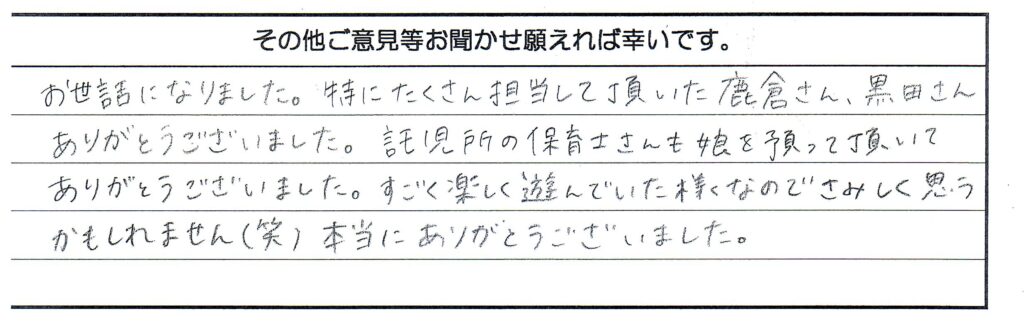 その他ご意見等お聞かせ願えれば幸いです。
お世話になりました。特にたくさん担当して頂いた鹿倉さん、黒田さん
ありがとうございました。託児所の保育士さんも娘を預って頂いて
ありがとうございました。すごく楽しく遊んでいた様くなのでさみしく思う
かもしれません(笑) 本当にありがとうございました。